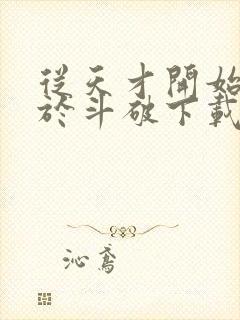 從天才開始
於斗破下載
沁鸞